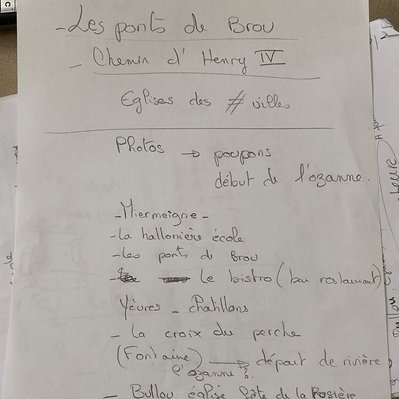 - Les ponts de Brou
- Chemin d'Henry IV
Eglises des # villes
Photos → poupons
début de l'ozanne.
- Miermeigne -
- la hallonière école
- Les ponts de Brou
- Le bistro (bar restaurant)
Yèvres - Chatillons
- La croix du perche
(Fontaine) → départ de rivière
l'ozanne ?.
- Bullou église fête de la Rosière